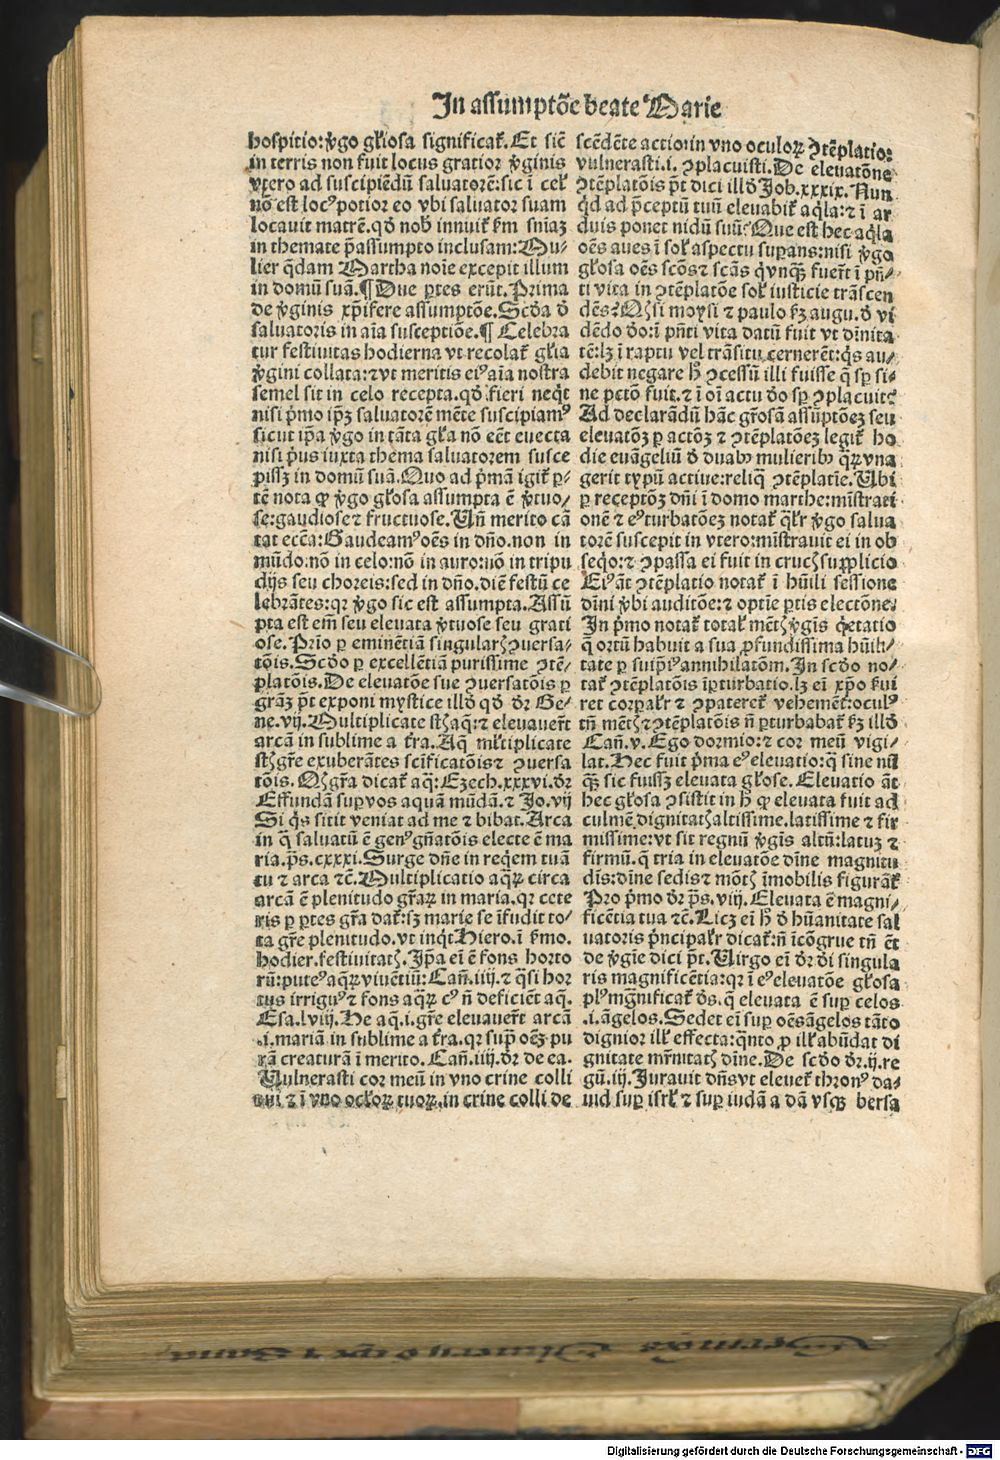 In assumptõe beate Marie
hospitio: v̾go gl̾iosa significat᷑. Et sic̃
in terris non fuit locus gratior v̾ginis
vtero ad suscipiẽdũ saluatorẽ: sic ĩ cel̾
nõ est loc⁹ potior eo vbi saluator suam
locauit matrẽ. qđ nob̾ innuit᷑ ẜm sñiaꝫ
in themate p̃assumpto inclusam: Mu⸗
lier q̃dam Martha noĩe excepit illum
in domũ suã. ¶ Due ꝑtes erũt. Prima
de v̾ginis xp̃ifere assumptõe. Scđa đ
saluatoris in aĩa susceptiõe. ¶ Celebra
tur festiuitas hodierna vt recolat᷑ gl̾ia
v̾gini collata: ⁊ vt meritis ei⁹ aĩa nostra
semel sit in celo recepta. qđ fieri neqͥt
nisi pͥmo ip̃ꝫ saluatorẽ mẽte suscipiam⁹
sicut ip̃a v̾go in tãta gl̾a nõ eẽt euecta
nisi pͥus iuxta thema saluatorem susce
pissꝫ in domũ suã. Quo ad pͥmã igit᷑ ꝑ⸗
tẽ nota ꝙ v̾go gl̾osa assumpta ẽ v̾tuo⸗
se: gaudiose ⁊ fructuose. Vñ merito cã
tat ecc̃a: Gaudeam⁹ oẽs in dño. non in
mũdo. nõ in celo: nõ in auro: nõ in tripu
dijs seu choreis: sed in dño. diẽ festũ ce
lebrãtes: qꝛ v̾go sic est assumpta. Assũ
pta est em̃ seu eleuata v̾tuose seu grati
ose. Prĩo ꝑ eminẽtiã singularꝭ ꝯuersa⸗
tõis. Scđo ꝑ excellẽtiã purissime ꝯtẽ⸗
platõis. De eleuatõe sue ꝯuersatõis ꝑ
grãꝫ p̃t exponi mystice illđ qđ đr Ge⸗
ne. vij. Multiplicate st̾ aq̃: ⁊ eleuauer̃t
arcã in sublime a t᷑ra. Aq̃ ml̾tiplicate
st̾ gr̃e exuberãtes sc̃ificatõis ⁊ ꝯuersa
tõis. Qꝭ gr̃a dicat᷑ aq̃: Ezech. xxxvi. đr
Effundã suꝑ vos aquã mũdã. ⁊ Jo. vij
Si qͥs sitit veniat ad me ⁊ bibat. Arca
in q̃ saluatũ ẽ gen⁹ gñatõis electe ẽ ma
ria. p̃s. cxxxi. Surge dñe in reqͥem tuã
tu ⁊ arca ⁊c̃. Multiplicatio aqͣꝝ circa
arcã ẽ plenitudo gr̃aꝝ in maria. qꝛ cete
ris ꝑ ꝑtes gr̃a dat᷑: sꝫ marie se ĩfudit to⸗
ta gr̃e plenitudo. vt inqͥt Hiero. ĩ ẜmo.
hodier. festiuitatꝭ. Ip̃a ei̾ ẽ fons horto
rũ: pute⁹ aqͣꝝ viuẽtiũ: Cañ. iiij. ⁊ q̃si hor
tus irrigu⁹ ⁊ fons aqͣꝝ c⁹ ñ deficiẽt aq̃.
Esa. lviij. He aq̃. i. gr̃e eleuauer̃t arcã
.i. mariã in sublime a t᷑ra. qꝛ suꝑ oẽꝫ pu
rã creaturã ĩ merito. Cañ. iiij. đr de ea.
Vulnerasti cor meũ in vno crine colli
tui ⁊ ĩ vno ocl̾oꝝ tuoꝝ. in crine colli de
scẽdẽte actio: in vno oculoꝝ ꝯtẽplatio:
vulnerasti. i. ꝯplacuisti. De eleuatõne
ꝯtẽplatõis p̃t dici illđ Job. xxxix. Nun
qͥd ad p̃ceptũ tuũ eleuabit᷑ aqͥla: ⁊ ĩ ar
duis ponet nidũ suũ? Que est hec aqͥla
oẽs aues ĩ sol᷑ aspectu suꝑans: nisi v̾go
gl̾osa oẽs scõs ⁊ scãs qͥcunqꝫ fuer̃t ĩ pñ⸗
ti vita in ꝯtẽplatõe sol᷑ iusticie trãscen
dẽs? Qꝭsi moysi ⁊ paulo ẜꝫ augu. đ vi
dẽdo đo: ĩ pñti vita datũ fuit vt dĩnita
tẽ: lꝫ ĩ raptu vel trãsitu cernerẽt: qͥs au⸗
debit negare h̾ ꝯcessũ illi fuisse q̃ sꝑ si⸗
ne pctõ fuit. ⁊ ĩ oĩ actu đo sꝑ ꝯplacuit?
Ad declarãdũ hãc gr̃osã assũptõeꝫ seu
eleuatõꝫ ꝑ actõꝫ ⁊ ꝯtẽplatõeꝫ legit᷑ ho
die euãgeliũ đ duabꝰ mulieribꝰ qͣꝝ vna
gerit typũ actiue: reliq̃ ꝯtẽplatĩe. Vbi
ꝑ receptõꝫ dñi ĩ domo marthe: mĩstrati
onẽ ⁊ e⁹ turbatõeꝫ notat᷑ q̃l᷑r v̾go salua
torẽ suscepit in vtero: mĩstrauit ei in ob
seqͥo: ⁊ ꝯpassa ei fuit in crucꝭ supplicio
Ei⁹ ãt ꝯtẽplatio notat᷑ ĩ hũili sessione
dñi v̾bi auditõe: ⁊ optĩe ꝑtis electõne.
In pͥmo notat᷑ total᷑ mẽtꝭ v̾gĩs qͥetatio
q̃ ortũ habuit a sua ꝓfundissima hũili⸗
tate ꝑ suip̃i⁹ annihilatõm. In scđo no⸗
tat᷑ ꝯtẽplatõis ĩꝑturbatio. lꝫ ei̾ xp̃o ẜui
ret corꝑal᷑r ⁊ ꝯpateret᷑ vehemẽt: ocul⁹
tñ mẽtꝭ ⁊ ꝯtẽplatõis ñ ꝑturbabat᷑ ẜꝫ illđ
Cañ. v. Ego dormio: ⁊ cor meũ vigi⸗
lat. Hec fuit pͥma e⁹ eleuatio: q̃ sine nil
qͣꝫ sic fuissꝫ eleuata gl̾ose. Eleuatio ãt
hec gl̾osa ꝯsistit in h̾ ꝙ eleuata fuit ad
culmẽ dignitatꝭ altissime. latissime ⁊ fir
missime: vt sit regnũ v̾gĩs altũ: latuꝫ ⁊
firmũ. q̃ tria in eleuatõe dĩne magnitu
dĩs: dĩne sedis ⁊ mõtꝭ ĩmobilis figurãt᷑
Pro pͥmo đr p̃s. viij. Eleuata ẽ magni⸗
ficẽtia tua ⁊c̃. Licꝫ ei̾ h̾ đ hũanitate sal
uatoris pͥncipal᷑r dicat᷑: ñ ĩcõgrue tñ ẽt
de v̾gĩe dici p̃t. Virgo ei̾ đr đi singula
ris magnificẽtia: qꝛ ĩ e⁹ eleuatõe gl̾osa
pl⁹ mg̃nificat᷑ đs. q̃ eleuata ẽ suꝑ celos
.i. ãgelos. Sedet ei̾ suꝑ oẽs ãgelos tãto
dignior ill᷑ effecta: qͣnto p̱ ill᷑ abũdat di
gnitate mr̃nitatꝭ dĩne. De scđo đr. ij. re
gũ. iij. Jurauit dñs vt eleuet᷑ thron⁹ da⸗
uid suꝑ isrl᷑ ⁊ suꝑ iudã a dã vsqꝫ bersa
Digitalisierung gefördert durch die Deutsche Forschungsgemeinschaft - DFG